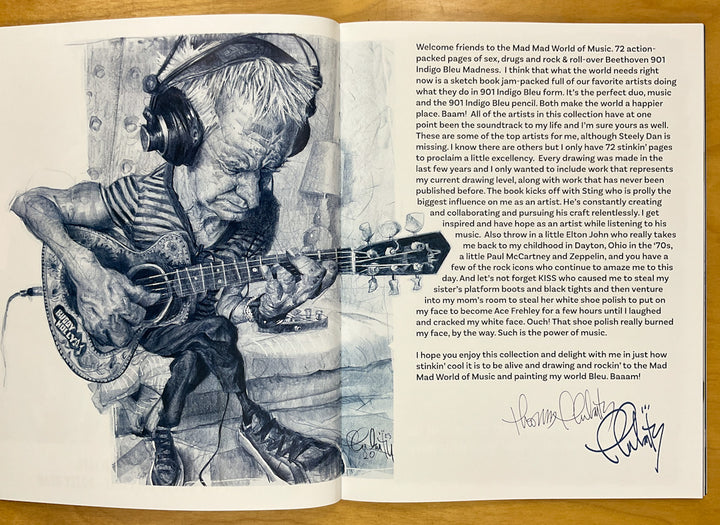 Welcome friends to the Mad Mad World of Music. 72 action-
packed pages of sex, drugs and rock & roll-over Beethoven 901
Indigo Bleu Madness. I think that what the world needs right
now is a sketch book jam-packed full of our favorite artists doing
what they do in 901 Indigo Bleu form. It's the perfect duo, music
and the 901 Indigo Bleu pencil. Both make the world a happier
place. Baam! All of the artists in this collection have at one
point been the soundtrack to my life and I'm sure yours as well.
These are some of the top artists for me, although Steely Dan is
missing. I know there are others but I only have 72 stinkin' pages
to proclaim a little excellency. Every drawing was made in the
last few years and I only wanted to include work that represents
my current drawing level, along with work that has never been
published before. The book kicks off with Sting who is prolly the
biggest influence on me as an artist. He's constantly creating
and collaborating and pursuing his craft relentlessly. I get
inspired and have hope as an artist while listening to his
music. Also throw in a little Elton John who really takes
me back to my childhood in Dayton, Ohio in the '70s,
a little Paul McCartney and Zeppelin, and you have a
few of the rock icons who continue to amaze me to this
day. And let's not forget KISS who caused me to steal my
sister's platform boots and black tights and then venture
into my mom's room to steal her white shoe polish to put on
my face to become Ace Frehley for a few hours until I laughed
and cracked my white face. Ouch! That shoe polish really burned
my face, by the way. Such is the power of music.
I hope you enjoy this collection and delight with me in just how
stinkin' cool it is to be alive and drawing and rockin' to the Mad
Mad World of Music and painting my world Bleu. Baaam!